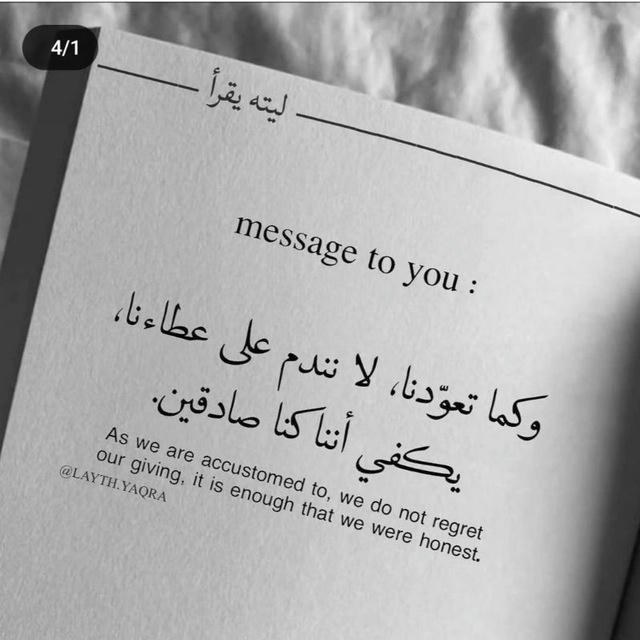 4/1
ليته يقرأ
message to you :
وكما تعوّدنا، لا نندم على عطاءنا،
يكفي أننا كنا صادقين.
As we are accustomed to, we do not regret
our giving, it is enough that we were honest.
@LAYTH.YAQRA